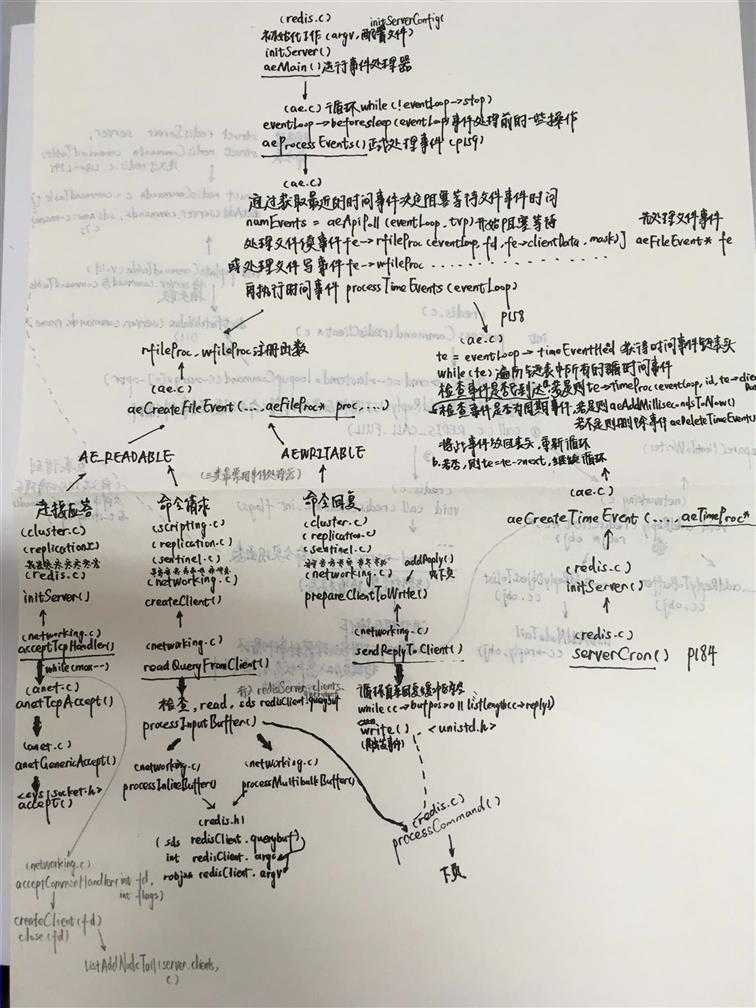 (redis.c) initServerConfig(
初始化工作(argv,配置文件)
initServer()
aeMain()进行事件处理器
(ae.c)循环while(!eventLoop->stop)
eventLoop->beforesleep(eventLoop)事件处理前的一些操作
aeProcessEvents()正式处理事件(p159)
(ae.c)
通过获取最近的时间事件决定阻塞等待文件事件时间
numEvents = aeApiPoll(eventLoop,tvp)开始阻塞等待
先处理文件事件
处理文件读事件fe->rfileProc(eventLoop,fd,fe->clientData,mask)] aeFileEvent* fe
或处理文件写事件fe->wfileProc . . . . . . . . . . . . . .
再执行时间事件 processTimeEvents(eventLoop)
p158
rfileProc,wfileProc注册函数
(ae.c)
aeCreateFileEvent(...,aeFileProc* proc,...)
(ae.c)
te = eventLoop->timeEventHead 获得时间事件链表头
while(te)遍历链表中所有的时间事件
检查事件是否到达,若是则te->timeProc(eventLoop,id,te->clien
a.检查事件是否为周期事件,若是则aeAddMillisecondsToNow()
若不是则删除事件aeDeleteTimeEvent()
将te事件放回表头,重新循环
b.若否,则te=te->next,继续循环
AE_READABLE
AE_WRITABLE
连接应答
(cluster.c)
(replication.c)
(redis.c)
initServer()
(networking.c)
acceptTcpHandler()
while(max--)
(anet.c)
anetTcpAccept()
(anet.c)
anetGenericAccept()
<sys/socket.h>
accept()
(networking.c)
acceptCommonHandler(int fd,
int flags)
createClient(fd)
close(fd)
listAddNodeTail(server.clients,
c)
命令请求
(scripting.c)
(replication.c)
(sentinel.c)
(networking.c)
createClient()
(networking.c)
readQueryFromClient()
检查,read,sds redisClient.querybuf
processInputBuffer()
(networking.c)
processInlineBuffer()
(networking.c)
processMultibulkBuffer()
(redis.h)
(sds redisClient.querybuf
int redisClient.argc
robj** redisClient.argv
命令回复
(cluster.c)
(replication.c)
(sentinel.c)
(networking.c)
addReply()
prepareClientToWrite()
(networking.c)
sendReplyToClient()
while(c->bufpos>0||listLength(c->reply))
write() <unistd.h>
(redis.c)
processCommand()
下页
(ae.c)
aeCreateTimeEvent(...,aeTimeProc*
(redis.c)
initServer()
(redis.c)
serverCron() p184